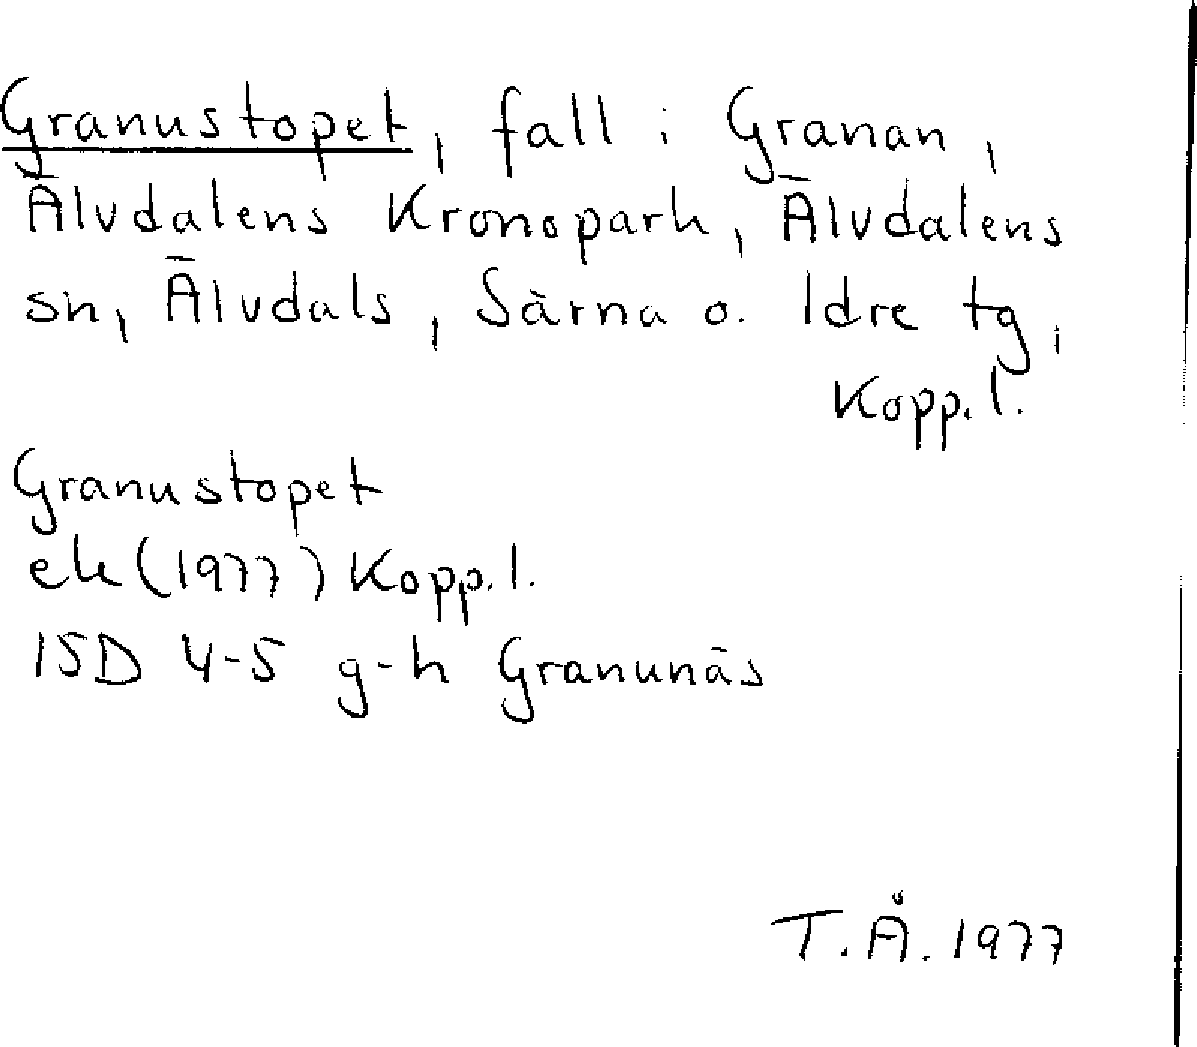 Granustopet, fall i Granan,
Älvdalens Kronopark, Älvdalens
sn, Älvdals, Särna o. Idre tg,
Kopp. l.
Granustopet
ek (1977) Kopp. l.
15D 4-5 g-h Granunäs
T.Å. 1977